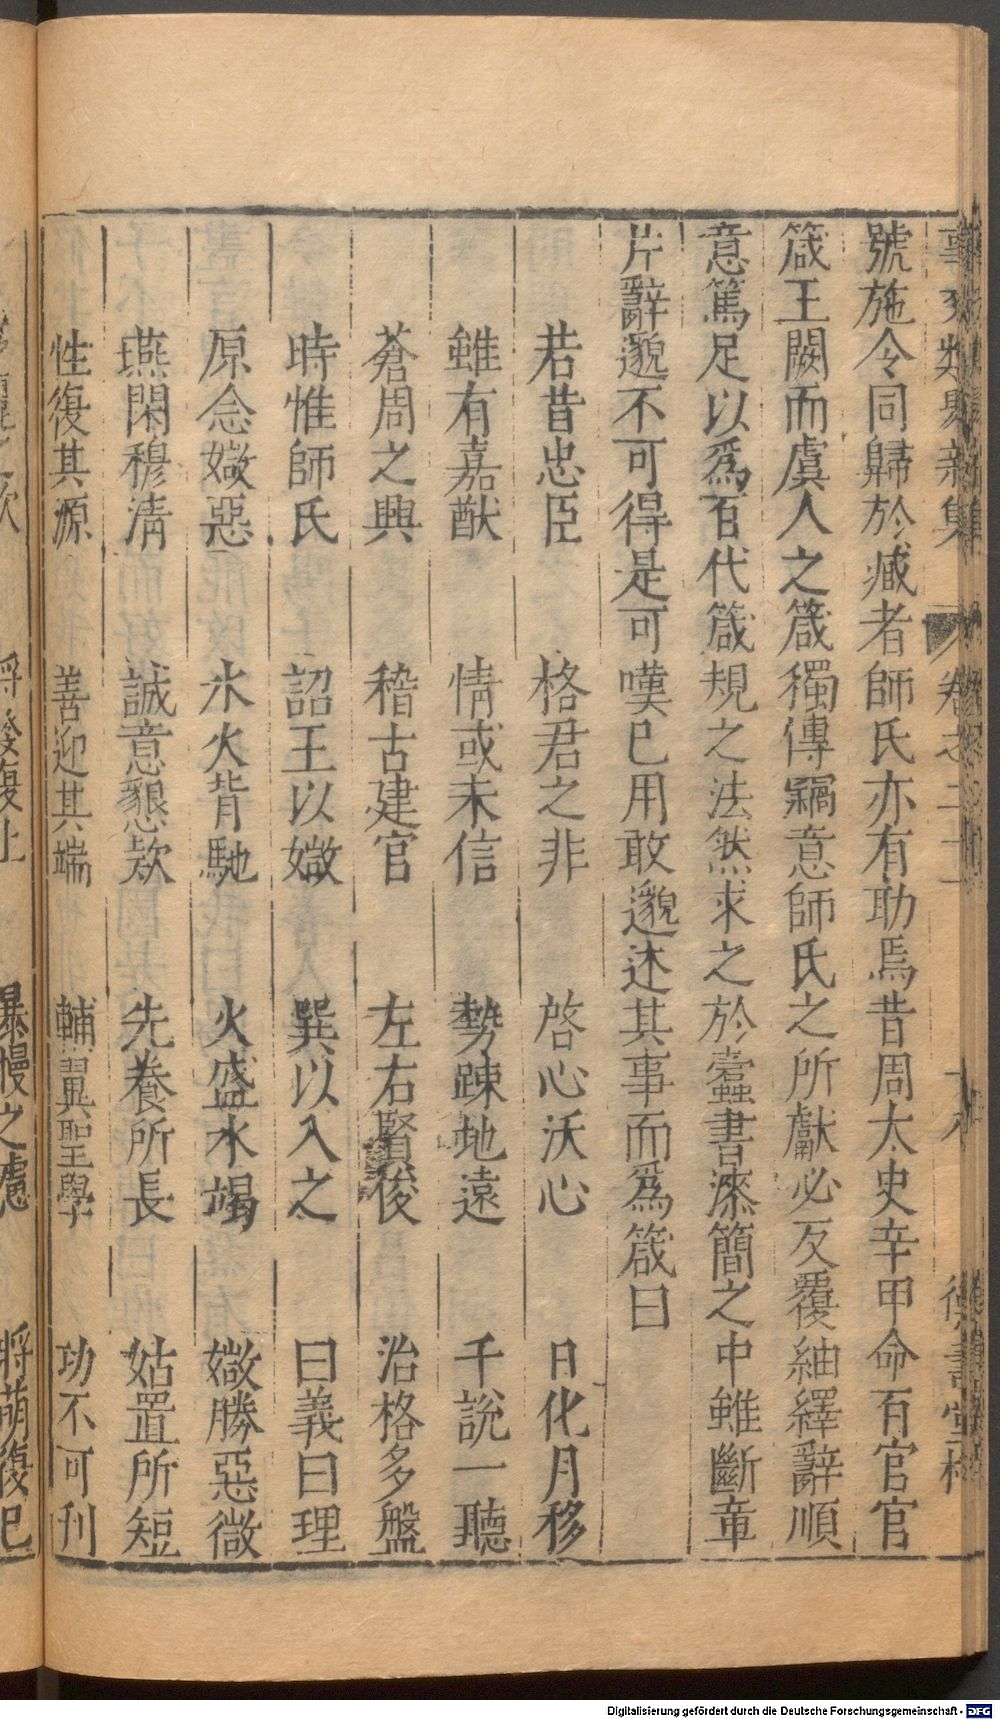 號施令同歸於臧者師氏亦有助焉昔周太史辛甲命百官官
箴王闕而虞人之箴獨傳竊意師氏之所獻必反覆紬繹辭順
意篤足以爲百代箴規之法然求之於蠹書漆簡之中雖斷章
片辭邈不可得是可嘆已用敢邈述其事而爲箴曰
若昔忠臣 格君之非 啓心沃心 日化月移
雖有嘉猷 情或未信 勢踈地遠 千說一聽
蒼周之興 稽古建官 左右賢後 治格多盤
時惟師氏 詔王以媺 巽以入之 曰義曰理
原念媺惡 氷火背馳 火盛水竭 媺勝惡微
燕閑穆清 誠意懇欵 先養所長 姑置所短
性復其源 善迎其端 輔翼聖學 功不可刊
將發復止 暴慢之慮 將萌復巳
Digitalisierung gefördert durch die Deutsche Forschungsgemeinschaft - DFG